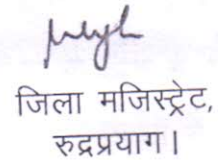 जिला मजिस्ट्रेट,
रुद्रप्रयाग।